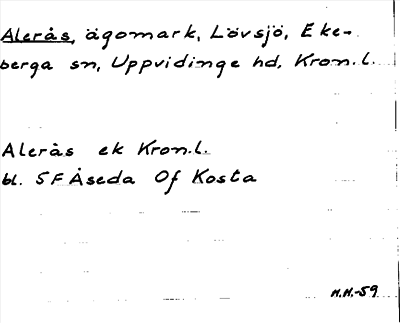 Alerås, ägomark, Lövsjö, Eke-
berga sn, Uppvidinge hd, Kron.l.
Alerås ek Kron.l.
bl. 5F Åseda Of Kosta
M.M.-59